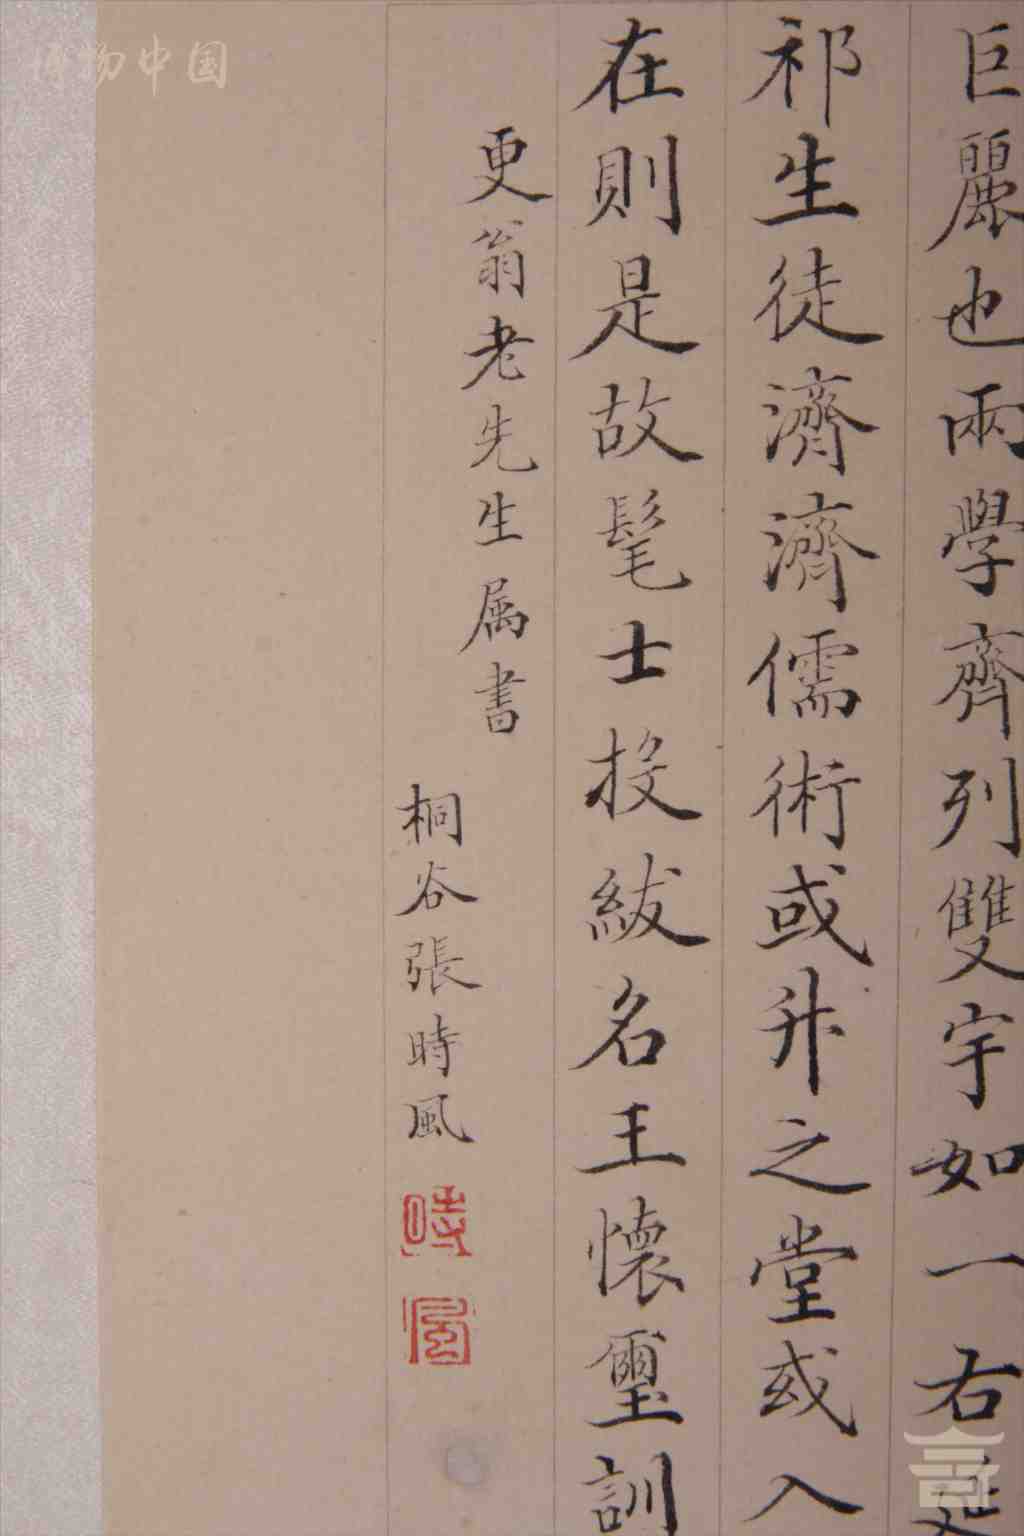 巨麗也兩學齊列雙宇如一右延
祁生徒濟濟儒術或升之堂或入
在則是故髦士投紱名王懷璽訓
更翁老先生属書
桐谷張時風
時
風
博物中国